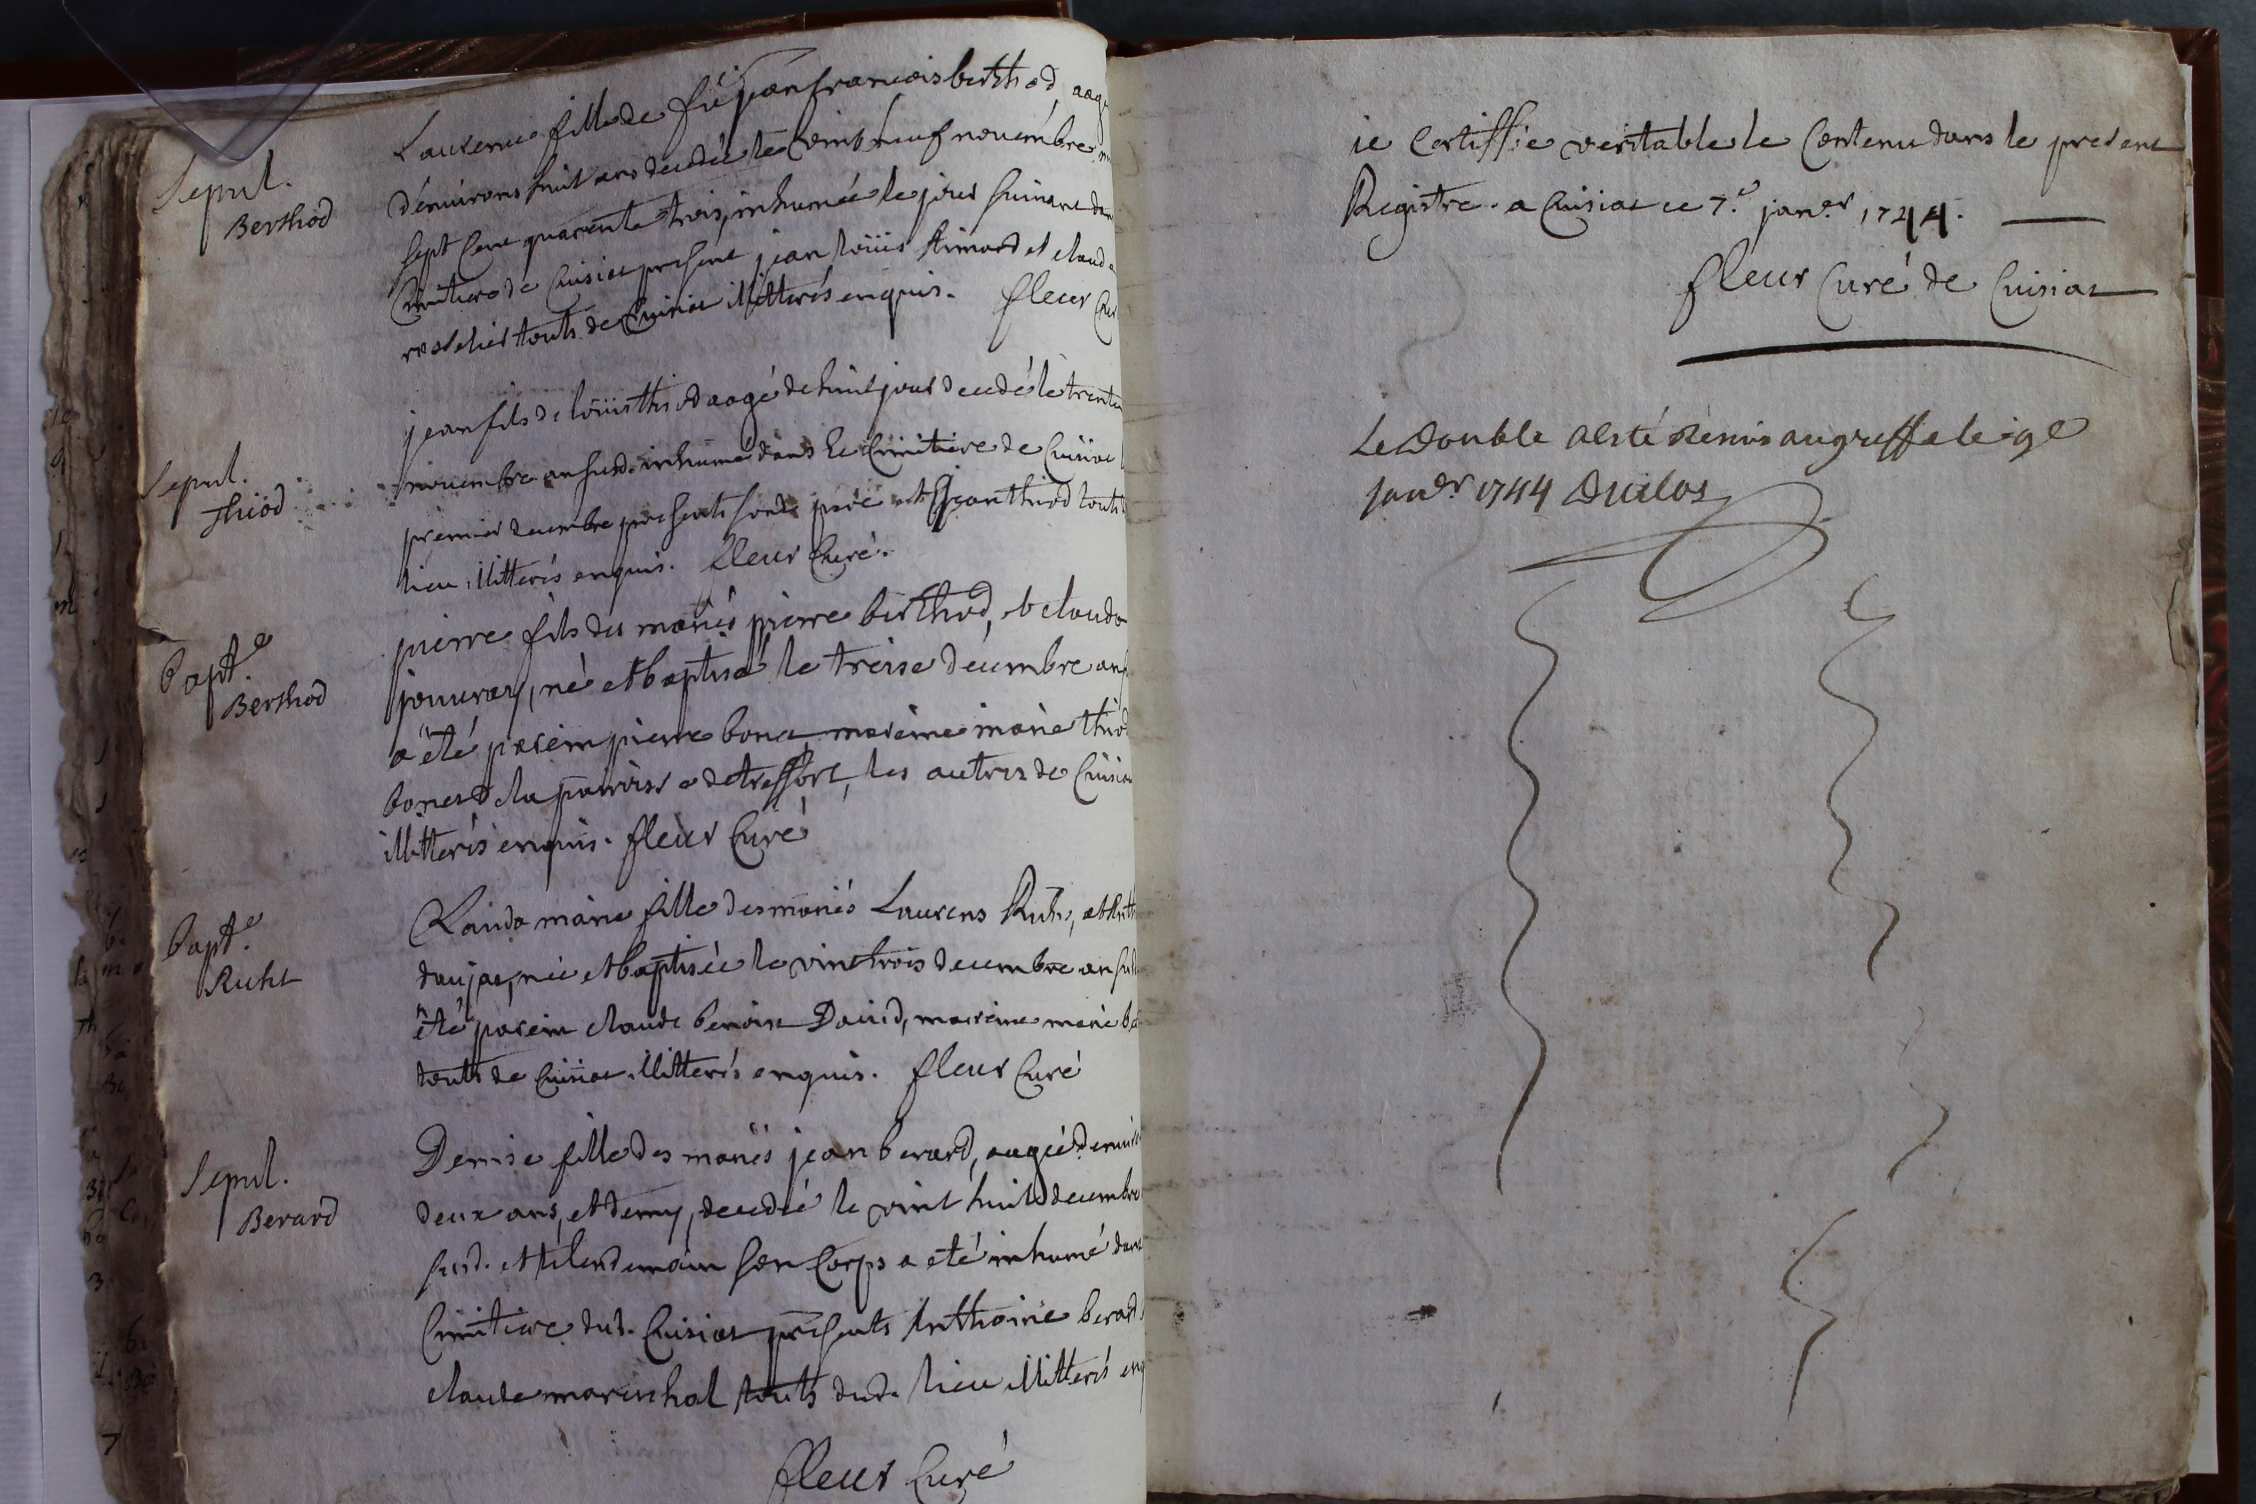 Sepul.
Berthod
Laurence fille de fû jean francois berthod aag
d'enuirons huit ans decedée le vint neuf novembre m
sept cent quarente trois, inhumée le jour suivant dan
Cimitiere de Cuisiat present jean loüis Aimard et claud
touts de Cuisiat illitterés enquis. fleur Cur
Sepul.
Thiod
jean fils de loüis thiod aagé de huit jour decedé le trente
novembre an susd. inhumé dans le Cimitiere de Cuisiat
premier decembre presents sond. pere et jean thiod touts
lieu illitterés enquis. fleur Curé.
Bapt.e
Berthod
pierre fils des mariés pierre berthod, et clauda
jouuray, né et baptisé le treise decembre an
a été parein pierre bonet mareine marie thiod
bonet de la parroisse de treffort, les autres de Cuisia
illitterés enquis. fleur Curé
Bapt.e
Ruht
Clauda marie fille des mariés Laurens
daujat, née et baptisée le vint trois decembre an su
été parein claude benoist David, mareine marie
touts de Cuisiat illitterés enquis. fleur Curé
Sepul.
Berard
Denise fille des mariés jean berard, aagée d'enuir
deux ans, et demy, decedée le vint huit decembre
susd. et le lendemain son Corps a été inhumé dans
Cimitiere dud. Cuisiat presents Anthoine berard
claude marechal touts dud. lieu illitterés enq
fleur Curé
ie Certiffie veritable le Contenu dans le present
Registre. a Cuisiat ce 7.e jan.er 1744.
fleur Curé de Cuisiat
Le double a esté remis au greffe le 9e
janer 1744